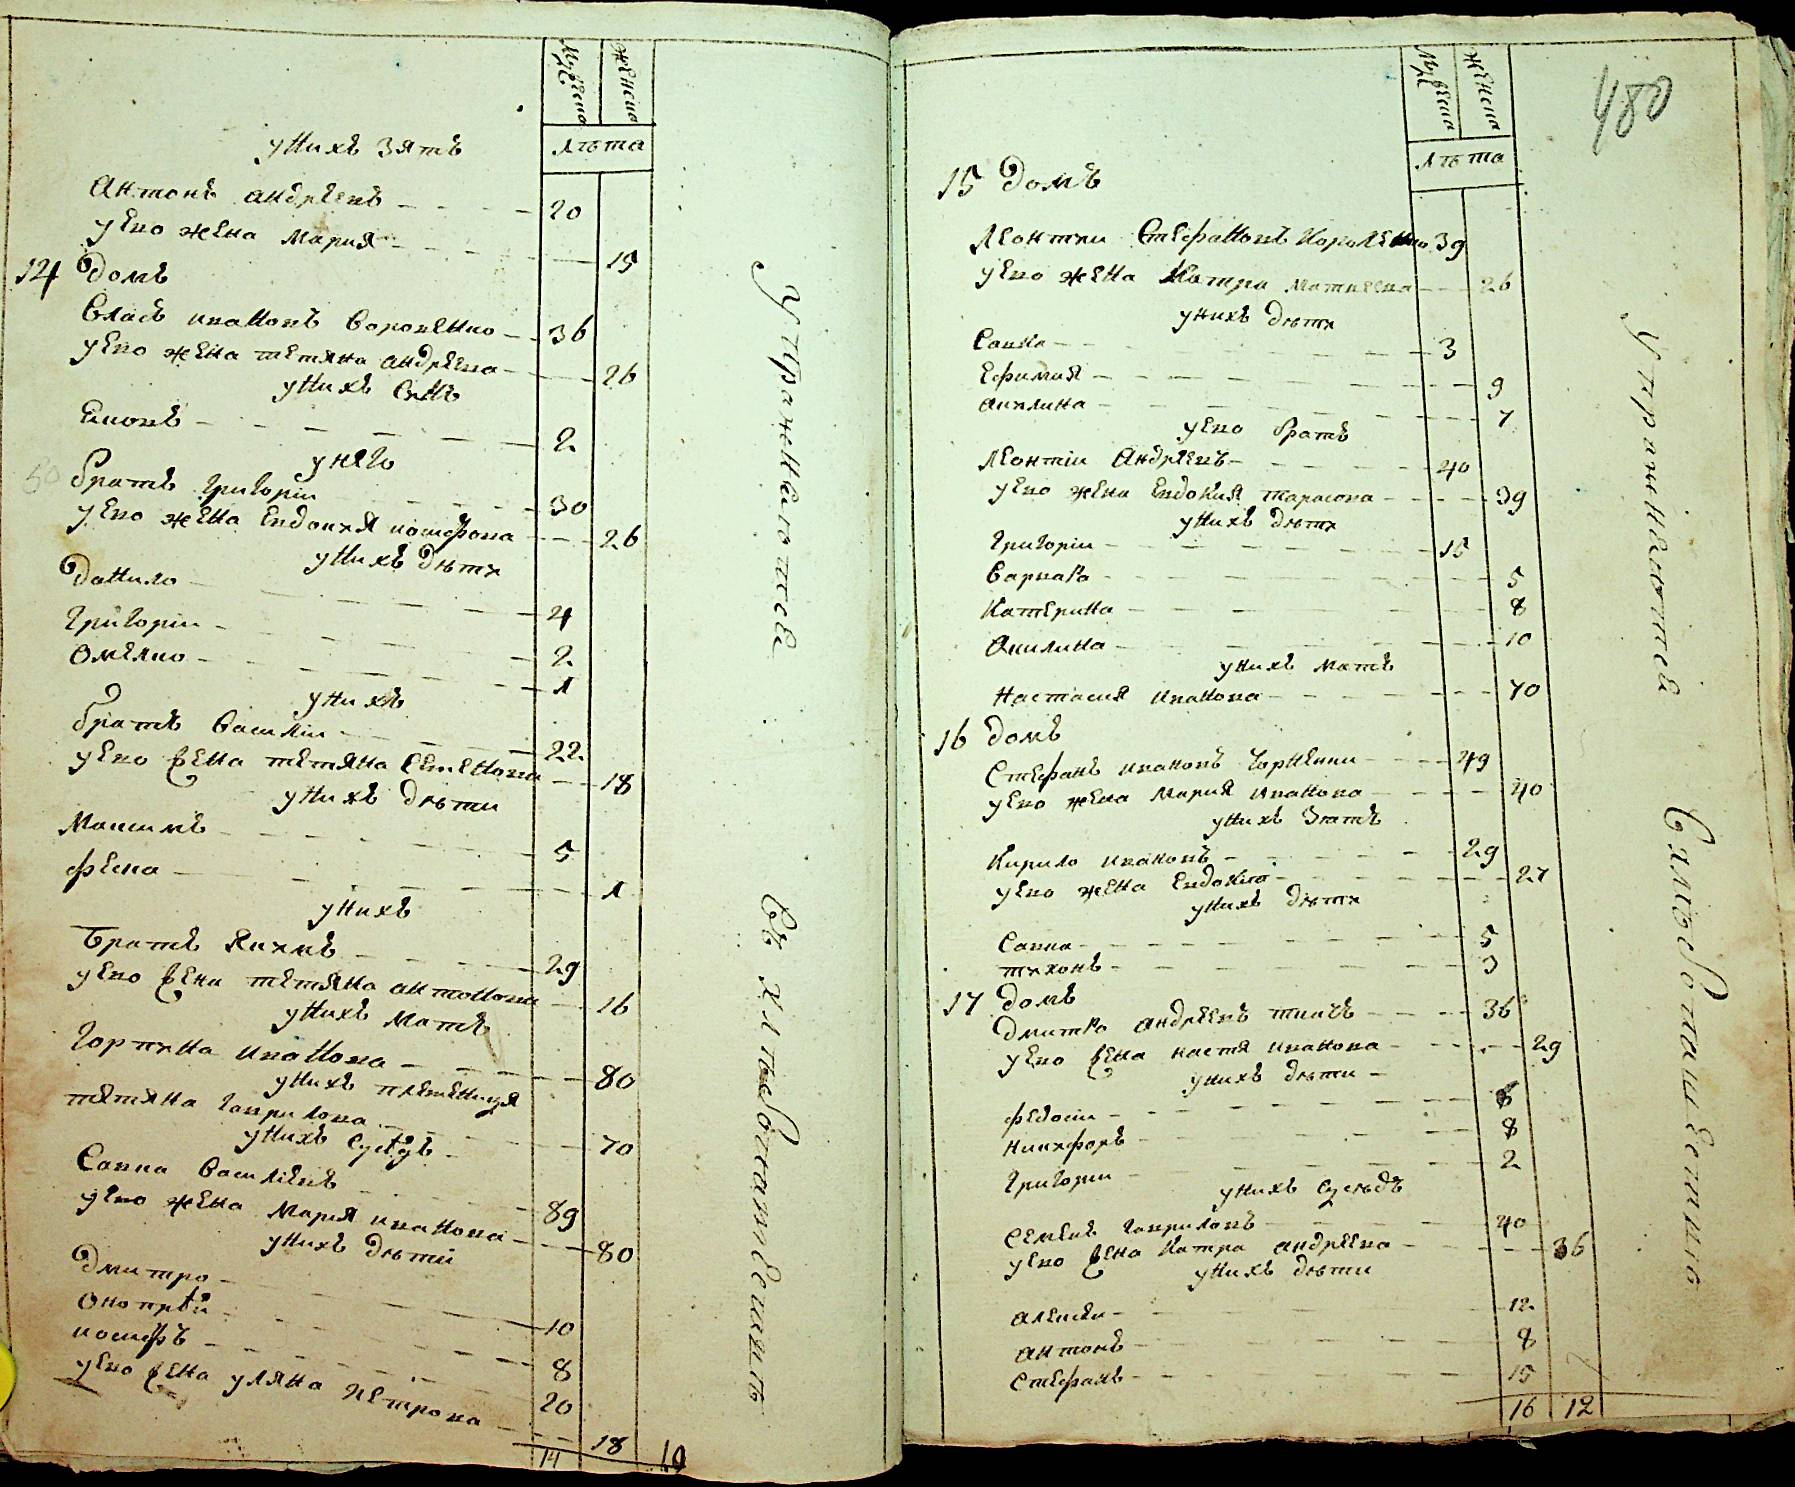 Мужеска
женска
лѣта
у нихъ зять
Антонъ Андреевъ 20
у его жена Мария 15
14 домъ
Власъ Ивановъ 36
у его жена Тетяна Андреева 26
у нихъ сынъ
2
у него
братъ Григорій 30
у его жена Евдокия Иосифова 26
у нихъ дѣти
Данило 4
Григорій 2
Омелко 1
у нихъ
братъ Василій 22
у его жена Тетяна Семенова 18
у нихъ дѣти
Максимъ 5
Феска 1
у нихъ
Братъ Яхимъ 29
у его жена Тетяна Антонова 16
у нихъ мать
Горпина Иванова 80
у нихъ племеница
Тетяна Гаврилова 70
у нихъ сусѣдъ
Савка Василіевъ 89
у его жена Мария Иванова 80
у нихъ дѣти
Дмитро 10
Онопрѣй 8
Иосифъ 20
у его жена Уляна Петрова 18
14 19
Упражнаютсе
Въ хлѣбопашествѣ
480
Мужеска
женска
лѣта
15 домъ
Леонтии Стефановъ 39
у его жена Катра Матвеева 26
у нихъ дѣти
Савка 3
Ефимия 9
Акилина 7
у его братъ
Леонтіи Андреевъ 40
у его жена Евдокия Тарасова 39
у нихъ дѣти
Григоріи 15
Варвара 5
Катерина 8
Акилина 10
у нихъ мать
Настасия Иванова 70
16 домъ
Стефанъ Ивановъ 49
у его жена Мария Иванова 40
у нихъ зять
Кирило Ивановъ 29
у его жена Евдокия 27
у нихъ дѣти
Савка 5
Тихонъ 3
17 домъ
Дмитро Андреевъ 36
у его жена Настя Иванова 29
у нихъ дѣти
Федосіи
Никифоръ 8
Григории 2
у нихъ сусѣдъ
Семенъ Гавриловъ 40
у его жена Катра Андреева 36
у нихъ дѣти
Алексѣи 12
Антонъ 8
Стефанъ 15
16 12
Упражнаютсе